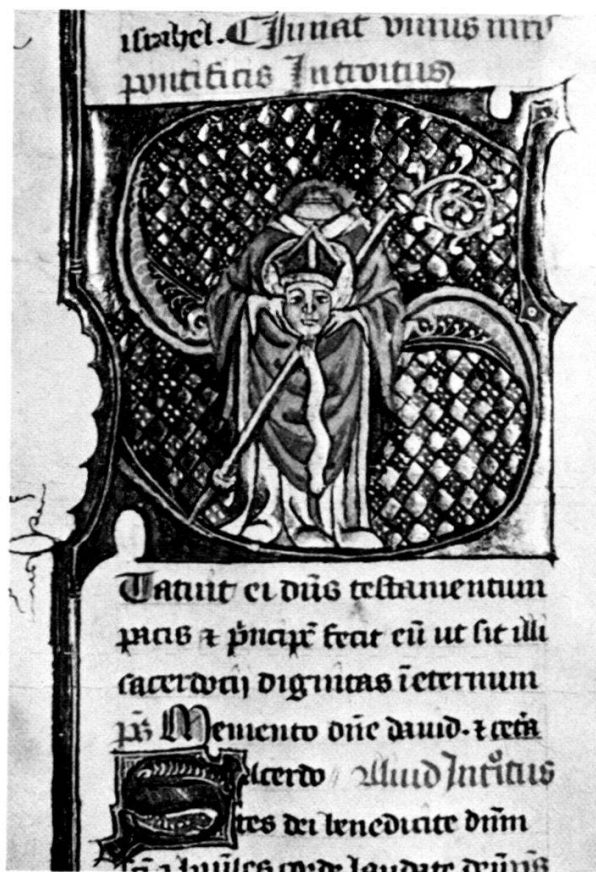 israhel. Cũuat unius
pontificis Introitus
S
Tatuit ei dn̄s testamentum
pacis ⁊ p̄ncipē fecit eū ut sit illi
sacerdocij dignitas īeternum
ps̄ Memento dn̄e dauid. ⁊ cet̄a
Sacerdo Aliud Introitus
tes dei benedicite dn̄m
laudate